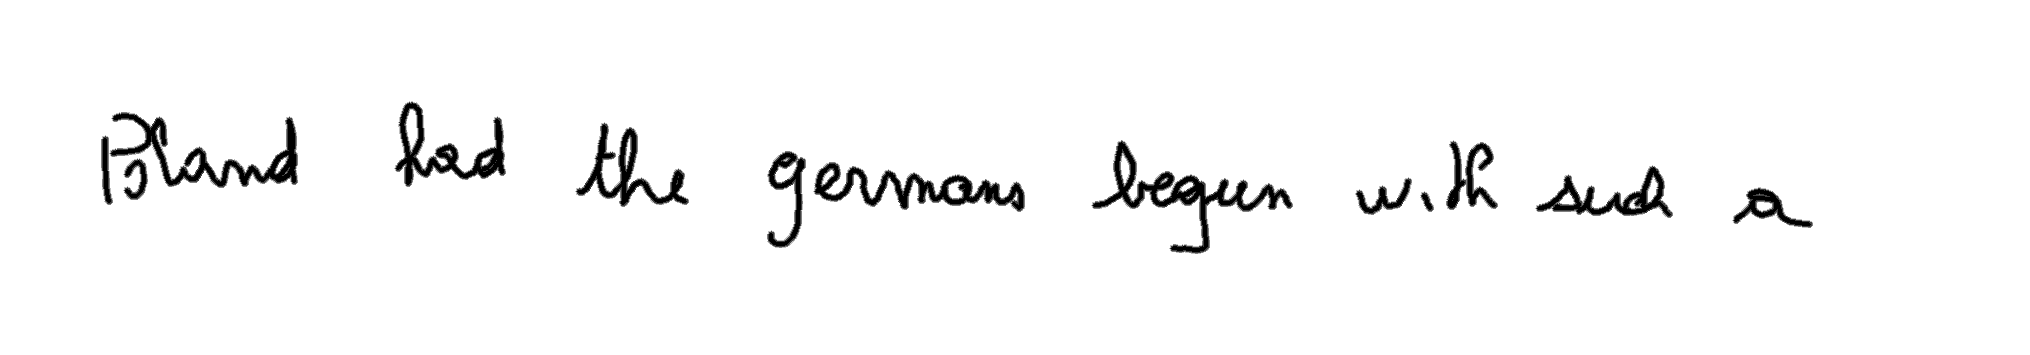 Poland had the germans begun with such a